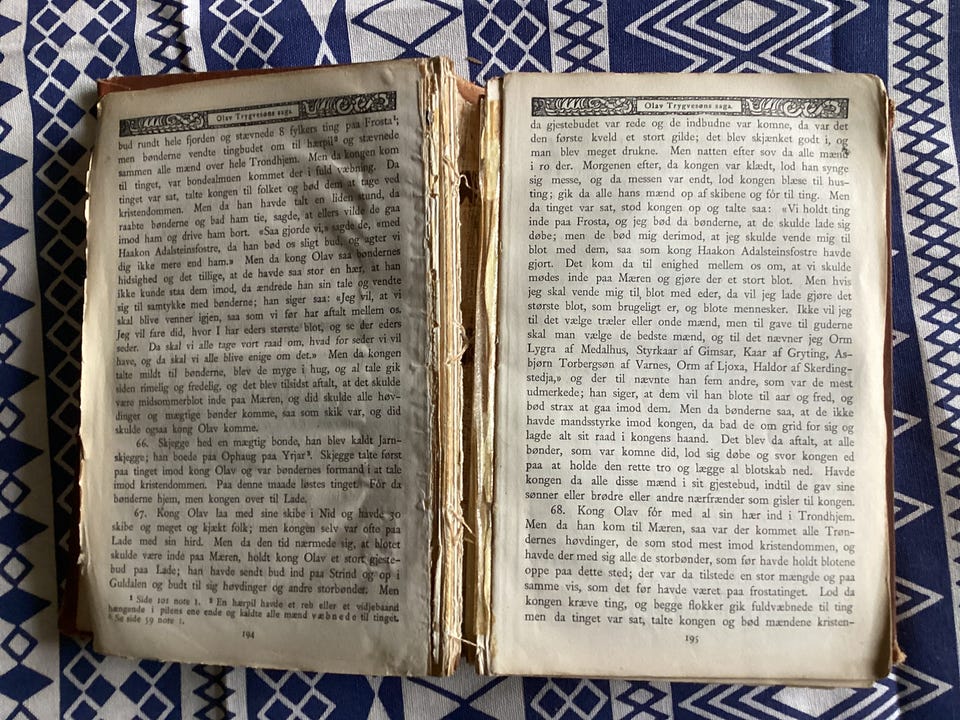 Olav Trygvesøns saga.
bud rundt hele fjorden og stævnede 8 fylkers ting paa Frosta¹;
men bønderne vendte tingbudet om til hærpil² og stævnede
sammen alle mænd over hele Trondhjem. Men da kongen kom
til tinget, var bondealmuen kommet der i fuld væbning. Da
tinget var sat, talte kongen til folket og bød dem at tage ved
kristendommen. Men da han havde talt en liden stund, da
raabte bønderne og bad ham tie, sagde, at ellers vilde de gaa
imod ham og drive ham bort. «Saa gjorde vi,» sagde de, «med
Haakon Adalsteinsfostre, da han bød os sligt bud, og agter vi
dig ikke mere end ham.» Men da kong Olav saa bøndernes
hidsighed og det tillige, at de havde saa stor en hær, at han
ikke kunde staa dem imod, da ændrede han sin tale og vendte
sig til samtykke med bønderne; han siger saa: «Jeg vil, at vi
skal blive venner igjen, saa som vi før har aftalt mellem os.
Jeg vil fare did, hvor I har eders største blot, og se der eders
seder. Da skal vi alle tage vort raad om, hvad for seder vi vil
have, og da skal vi alle blive enige om det.» Men da kongen
talte mildt til bønderne, blev de myge i hug, og al tale gik
siden rimelig og fredelig, og det blev tilsidst aftalt, at det skulde
være midsommerblot inde paa Mæren, og did skulde alle høv-
dinger og mægtige bønder komme, saa som skik var, og did
skulde ogsaa kong Olav komme.
66. Skjegge hed en mægtig bonde, han blev kaldt Jarn-
skjegge; han boede paa Ophaug paa Yrjar³. Skjegge talte først
paa tinget imod kong Olav og var bøndernes formand i at tale
imod kristendommen. Paa denne maade løstes tinget. Fór da
bønderne hjem, men kongen over til Lade.
67. Kong Olav laa med sine skibe i Nid og havde 30
skibe og meget og kjækt folk; men kongen selv var ofte paa
Lade med sin hird. Men da den tid nærmede sig, at blotet
skulde være inde paa Mæren, holdt kong Olav et stort gjeste-
bud paa Lade; han havde sendt bud ind paa Strind og op i
Guldalen og budt til sig høvdinger og andre storbønder. Men
¹ Side 101 note 1. ² En hærpil havde et reb eller et vidjebaand
hængende i pilens ene ende og kaldte alle mænd væbnede til tinget.
³ Se side 59 note 1.
194
Olav Trygvesøns saga.
da gjestebudet var rede og de indbudne var komne, da var det
den første kveld et stort gilde; det blev skjænket godt i, og
man blev meget drukne. Men natten efter sov da alle mænd
i ro der. Morgenen efter, da kongen var klædt, lod han synge
sig messe, og da messen var endt, lod kongen blæse til hus-
ting; gik da alle hans mænd op af skibene og fór til ting. Men
da tinget var sat, stod kongen op og talte saa: «Vi holdt ting
inde paa Frosta, og jeg bød da bønderne, at de skulde lade sig
døbe; men de bød mig derimod, at jeg skulde vende mig til
blot med dem, saa som kong Haakon Adalsteinsfostre havde
gjort. Det kom da til enighed mellem os om, at vi skulde
mødes inde paa Mæren og gjøre der et stort blot. Men hvis
jeg skal vende mig til blot med eder, da vil jeg lade gjøre det
største blot, som brugeligt er, og blote mennesker. Ikke vil jeg
til det vælge træler eller onde mænd, men til gave til guderne
skal man vælge de bedste mænd, og til det nævner jeg Orm
Lygra af Medalhus, Styrkaar af Gimsar, Kaar af Gryting, As-
bjørn Torbergsøn af Varnes, Orm af Ljoxa, Haldor af Skerding-
stedja,» og der til nævnte han fem andre, som var de mest
udmerkede; han siger, at dem vil han blote til aar og fred, og
bød strax at gaa imod dem. Men da bønderne saa, at de ikke
havde mandsstyrke imod kongen, da bad de om grid for sig og
lagde alt sit raad i kongens haand. Det blev da aftalt, at alle
bønder, som var komne did, lod sig døbe og svor kongen ed
paa at holde den rette tro og lægge al blotskab ned. Havde
kongen da alle disse mænd i sit gjestebud, indtil de gav sine
sønner eller brødre eller andre nærfrænder som gisler til kongen.
68. Kong Olav fór med al sin hær ind i Trondhjem.
Men da han kom til Mæren, saa var der kommet alle Trøn-
dernes høvdinger, de som stod mest imod kristendommen, og
havde der med sig alle de storbønder, som før havde holdt blotene
oppe paa dette sted; der var da tilstede en stor mængde og paa
samme vis, som det før havde været paa frostatinget. Lod da
kongen kræve ting, og begge flokker gik fuldvæbnede til ting
men da tinget var sat, talte kongen og bød mændene kristen-
195